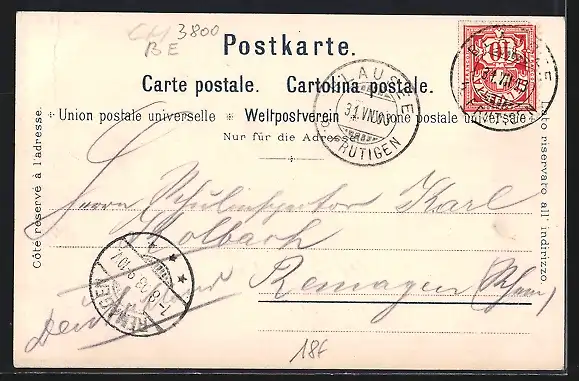 CH 3800
BE
Postkarte.
Carte postale. Cartolina postale.
Union postale universelle * Weltpostverein * Unione postale universale
Nur für die Adresse
Côté réservé à l'adresse.
Lato riservato all' indirizzo.
BLAUSEE
31.VII.03
(FRUTIGEN)
10
Herrn Schulinspektor Karl
Kolbach
Remagen (Rhein)
REMAGEN
18F